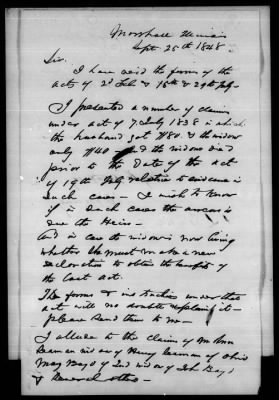 Marshall Illinois
Sept 25th 1848
Sir.
I have recd the forms of the
acts of 2d Feb & & 29th July—
I presented a number of claims
under act of 7 July 1838 in which
the husband got $80 & the widow
only $40 & the widows died
prior to the date of the act
of 19th July relative to evidence in
such cases — I wish to know
if in such cases the arrears is
due the Heirs—
And in case the widow is now living
whether she must make a new
declaration to obtain the benefits of
the last act.
The forms & instructions under that
act will no doubt explain it—
please send them to me—
I allude to the claims of Ann
Beaman widow of Henry Beaman of Ohio
Mary Boyd of Ind widow of John Boyd
& several others—